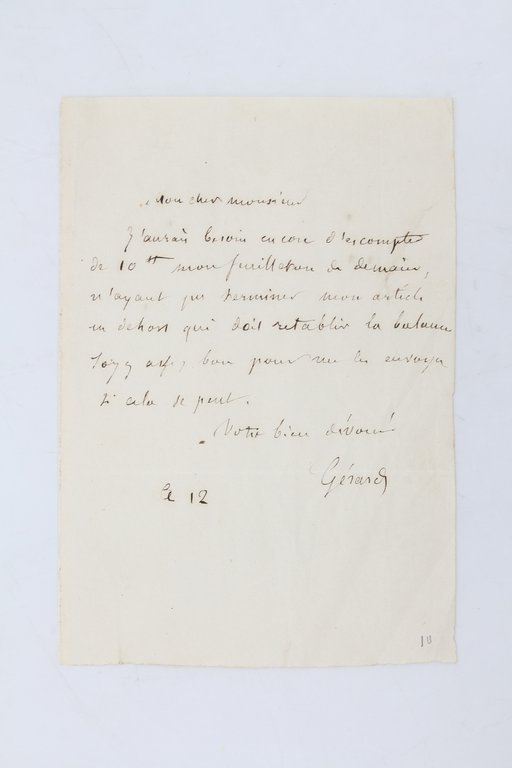 Mon cher monsieur
J'aurais besoin encore d'escompter
de 10 ᶠᵗ mon feuilleton de demain,
n'ayant pu terminer mon article
en dehors qui doit retablir la balance
Soyez assez bon pour me les envoyer
Si cela se peut.
Votre bien dévoué
Gérard
Le 12
10